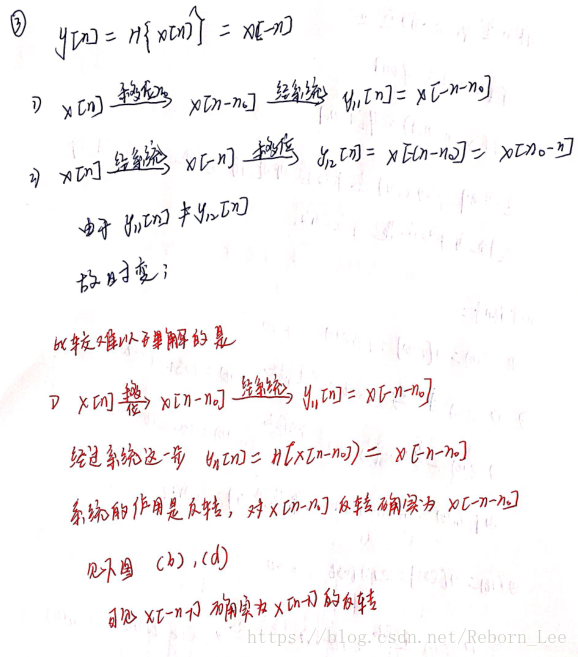 ③ y[n] = H{x[n]} = x[-n]
1) x[n] 移位n₀→ x[n-n₀] 经系统→ y₁₁[n] = x[-n-n₀]
2) x[n] 经系统→ x[-n] 移位→ y₁₂[n] = x[-(n-n₀)] = x[n₀-n]
由于 y₁₁[n] ≠ y₁₂[n]
故时变；
比较难以理解的是
1) x[n] 移位→ x[n-n₀] 经系统→ y₁₁[n] = x[-n-n₀]
经过系统这一步 y₁₁[n] = H(x[n-n₀]) = x[-n-n₀]
系统的作用是反转，对x[n-n₀]反转确实为 x[-n-n₀]
见下图 (b),(d)
可见 x[-n-1] 确实为 x[n-1] 的反转
https://blog.csdn.net/Reborn_Lee